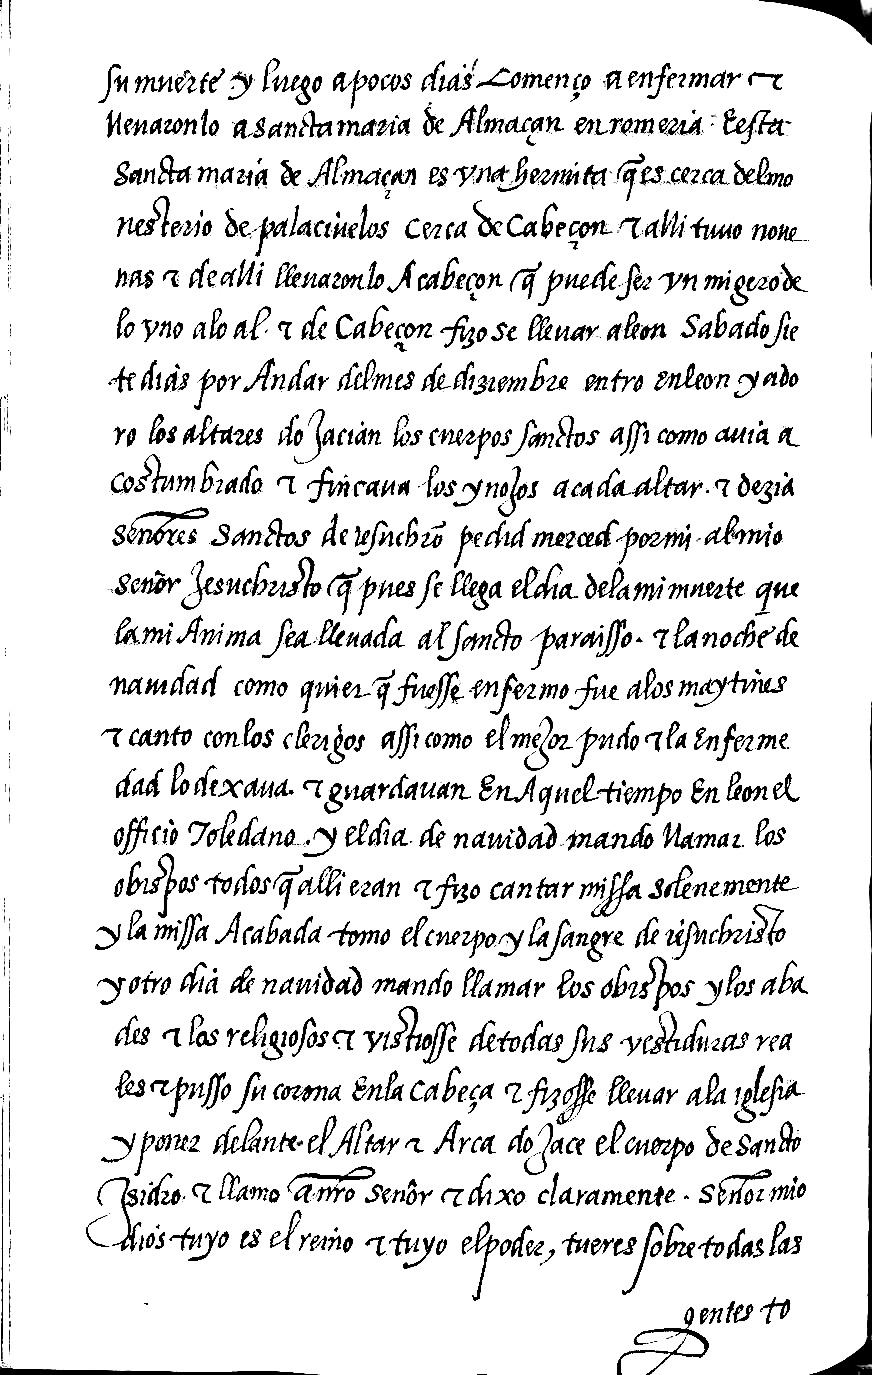 su muerte y luego a pocos dias Començo a enfermar et
lleuaronlo a sancta maria de Almaçan en romeria · E esta
Sancta maria de Almaçan es vna hermita q̃ es cerca del mo
nesterio de palaciuelos cerca de Cabeçon τ alli tuuo noue
nas τ de alli lleuaronlo A cabeçon q̃ puede ser vn migero de
lo vno alo al · τ de Cabeçon fizose lleuar a leon Sabado sie
te dias por Andar del mes de diziembre entro en leon y ado
ro los altares do Jacian los cuerpos sanctos assi como auia a
costumbrado τ fincaua los ynojos a cada altar · τ dezia
señores Sanctos de iesuchr̃o pedid merced por mi · al mio
señor Jesuchristo q̃ pues se llega el dia de la mi muerte que
la mi Anima sea lleuada al sancto paraisso · τ la noche de
nauidad como quier q̃ fuesse enfermo fue a los maytines
τ canto con los clerigos assi como el mejor pudo τ la Enferme
dad lo dexaua · τ guardauan En Aquel tiempo En leon el
officio Toledano · y el dia de nauidad mando llamar los
obispos todos q̃ alli eran τ fizo cantar missa solenemente
y la missa Acabada tomo el cuerpo y la sangre de iesuchristo
y otro dia de nauidad mando llamar los obispos y los aba
des τ los religiosos τ vistiosse de todas sus vestiduras rea
les τ pusso su corona En la Cabeça τ fizosse lleuar a la iglesia
y poner delante · el Altar τ Arca do Jace el cuerpo de Sancto
Isidro · τ llamo a nr̃o Señor τ dixo claramente · Señor mio
dios tuyo es el reino τ tuyo el poder, tu eres sobre todas las
gentes to